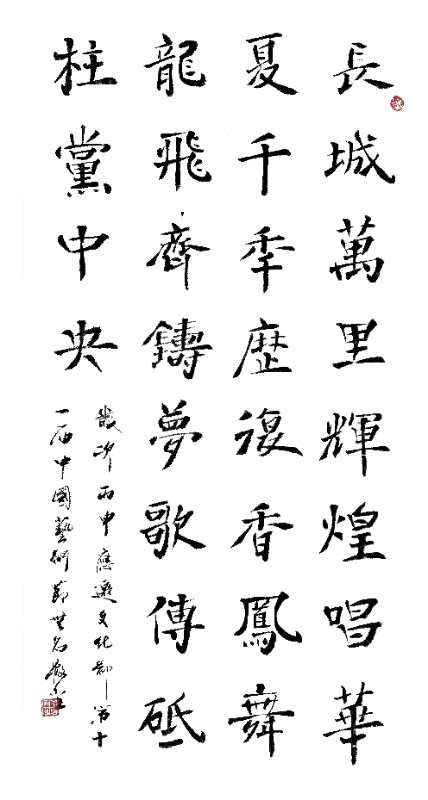 長城萬里輝煌唱華
夏千年歷復香鳳舞
龍飛齊鑄夢歌傳砥
柱黨中央
歲次丙申應邀文化部第十
一届中國藝術節